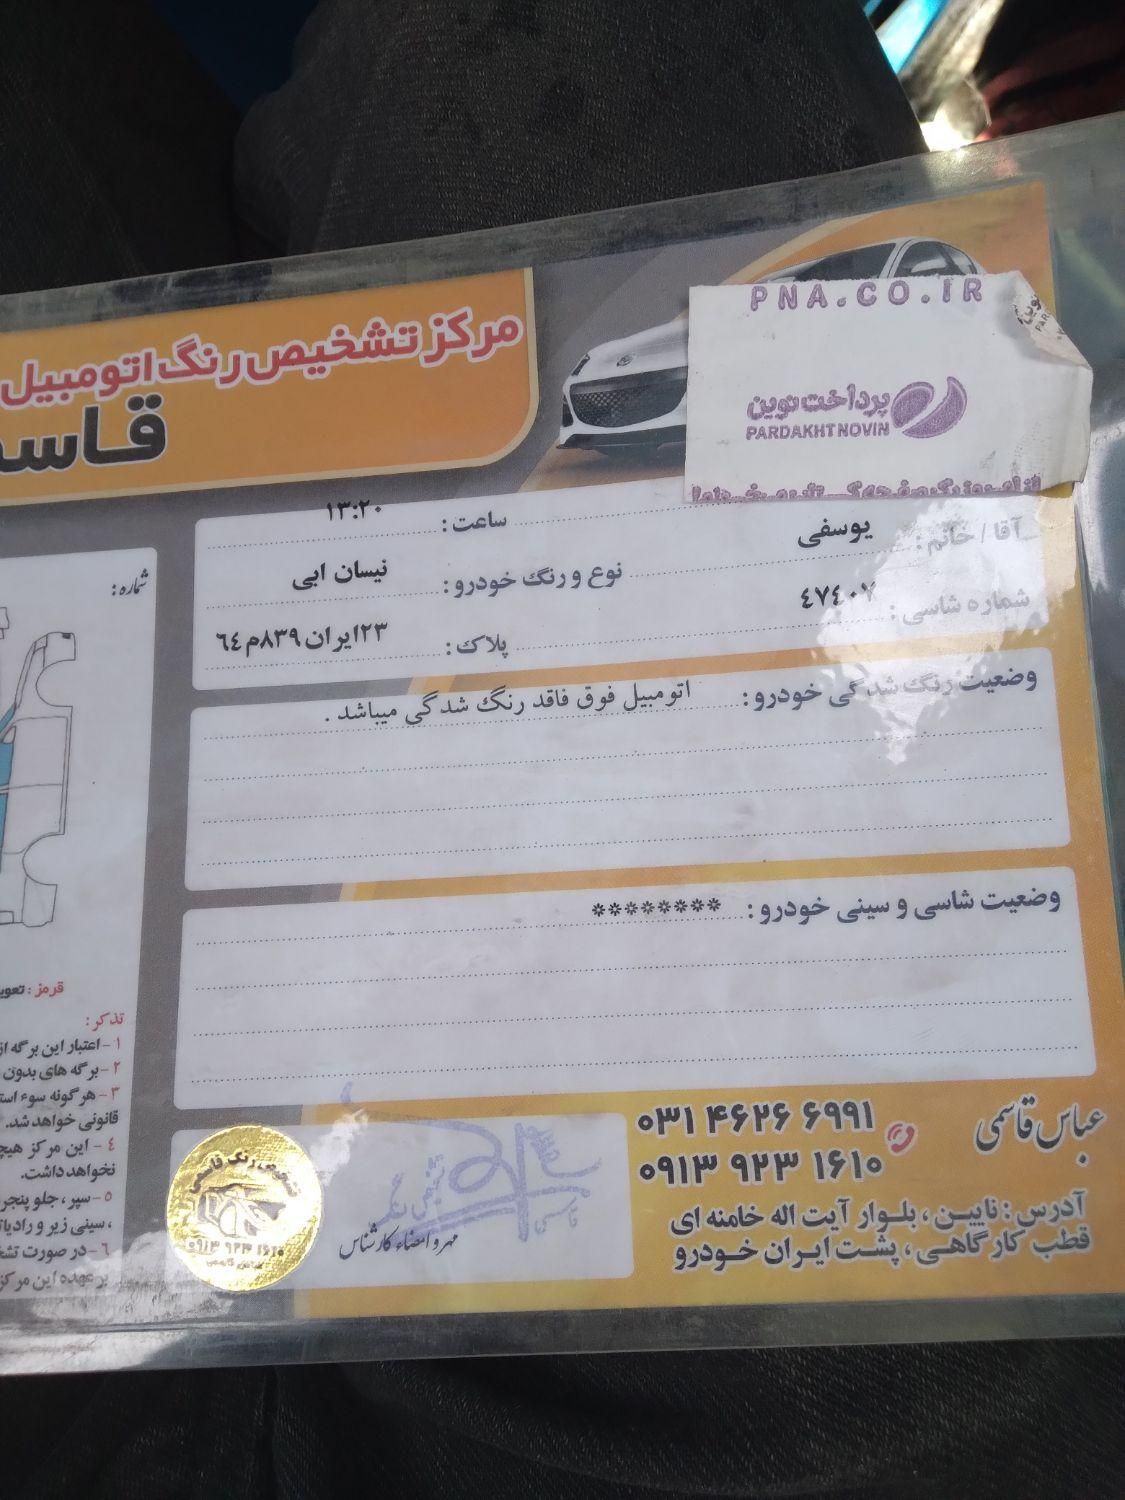 مرکز تشخیص رنگ اتومبیل
PNA.CO.IR
پرداخت نوین
PARDAKHT NOVIN
آقا / خانم: یوسفی
ساعت: ۱۳:۲۰
شماره شاسی: ٤٧٤٠٧
نوع و رنگ خودرو: نیسان ابی
پلاک: ۲۳ایران ۸۳۹م٦٤
وضعیت رنگ شدگی خودرو: اتومبیل فوق فاقد رنگ شدگی میباشد .
وضعیت شاسی و سینی خودرو: ********
شماره:
قرمز:
تذکر:
۱- اعتبار این برگه از
۲- برگه های بدون
۳- هر گونه سوء
قانونی خواهد شد.
٤- این مرکز
نخواهد داشت.
۵- سپر ، جلو
، سینی زیر و
٦- در صورت
بر عهده این مرکز
عباس قاسمی
۰۳۱ ۴۶۲۶ ۶۹۹۱
۰۹۱۳ ۹۲۳ ۱۶۱۰
آدرس: نایین ، بلوار آیت اله خامنه ای
قطب کارگاهی ، پشت ایران خودرو
مهر و امضاء کارشناس
تشخیص رنگ قاسمی
۰۹۱۳ ۹۲۳ ۱۶۱۰